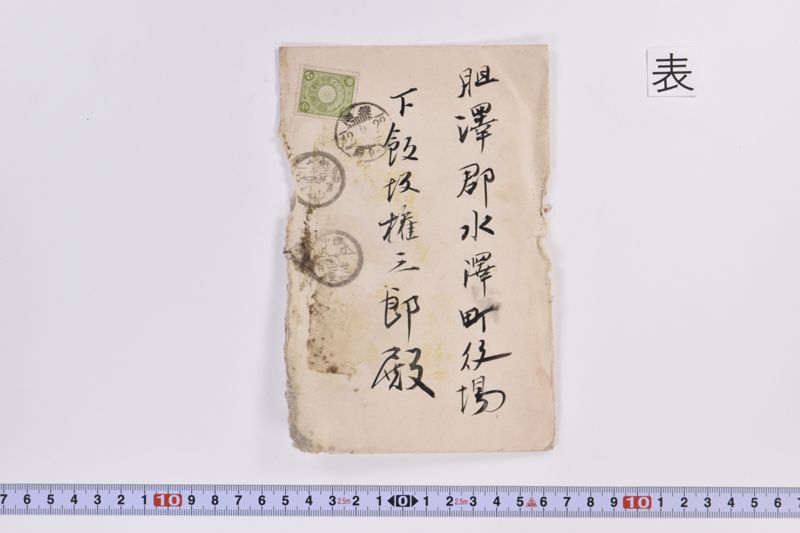 表
胆澤郡水澤町役場
下飯坂権三郎殿
7 6 5 4 3 2 1 10 9 8 7 6 5 4 3 2.5m 2 1 0 1 2 2.5m 3 4 5 6 7 8 9 10 1 2 3 4 5 6 7